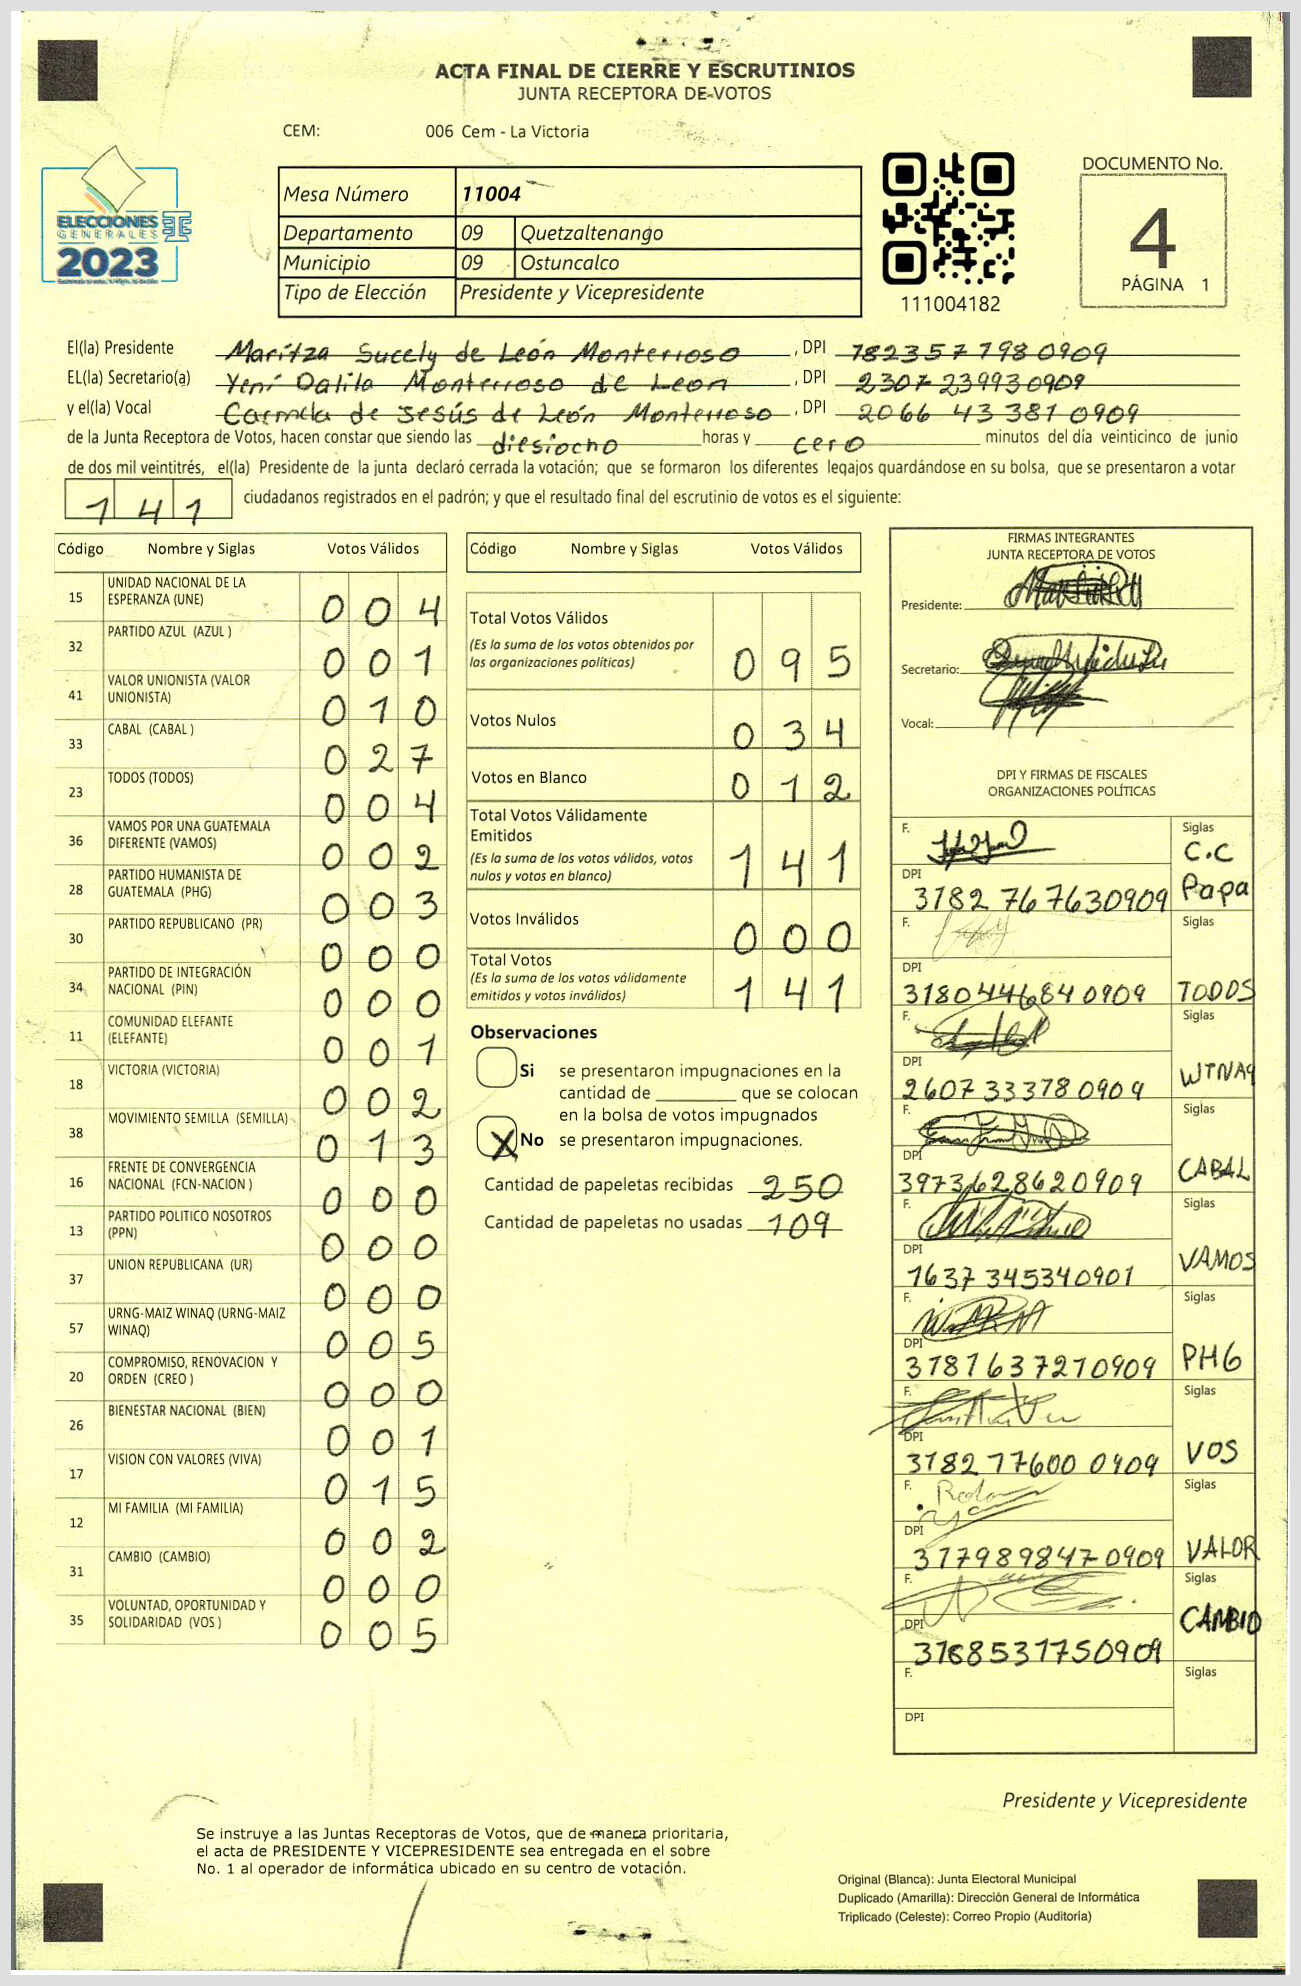 ACTA FINAL DE CIERRE Y ESCRUTINIOS
JUNTA RECEPTORA DE VOTOS
CEM: 006 Cem - La Victoria
ELECCIONES
GENERALES
2023
Mesa Número 11004
Departamento 09 Quetzaltenango
Municipio 09 Ostuncalco
Tipo de Elección Presidente y Vicepresidente
111004182
DOCUMENTO No.
4
PÁGINA 1
El(la) Presidente Maritza Sucely de León Monterroso, DPI 7823577980909
EL(la) Secretario(a) Yeni Dalila Monterroso de Leon, DPI 2307239930909
y el(la) Vocal Carmela de Jesús de León Monterroso, DPI 2066 43381 0909
de la Junta Receptora de Votos, hacen constar que siendo las diesiocho horas y cero minutos del día veinticinco de junio
de dos mil veintitrés, el(la) Presidente de la junta declaró cerrada la votación; que se formaron los diferentes legajos guardándose en su bolsa, que se presentaron a votar
141 ciudadanos registrados en el padrón; y que el resultado final del escrutinio de votos es el siguiente:
Código Nombre y Siglas Votos Válidos
15 UNIDAD NACIONAL DE LA ESPERANZA (UNE) 004
32 PARTIDO AZUL (AZUL ) 001
41 VALOR UNIONISTA (VALOR UNIONISTA) 010
33 CABAL (CABAL ) 027
23 TODOS (TODOS) 004
36 VAMOS POR UNA GUATEMALA DIFERENTE (VAMOS) 002
28 PARTIDO HUMANISTA DE GUATEMALA (PHG) 003
30 PARTIDO REPUBLICANO (PR) 000
34 PARTIDO DE INTEGRACIÓN NACIONAL (PIN) 000
11 COMUNIDAD ELEFANTE (ELEFANTE) 001
18 VICTORIA (VICTORIA) 002
38 MOVIMIENTO SEMILLA (SEMILLA) 013
16 FRENTE DE CONVERGENCIA NACIONAL (FCN-NACION ) 000
13 PARTIDO POLITICO NOSOTROS (PPN) 000
37 UNION REPUBLICANA (UR) 000
57 URNG-MAIZ WINAQ (URNG-MAIZ WINAQ) 005
20 COMPROMISO, RENOVACION Y ORDEN (CREO ) 000
26 BIENESTAR NACIONAL (BIEN) 001
17 VISION CON VALORES (VIVA) 015
12 MI FAMILIA (MI FAMILIA) 002
31 CAMBIO (CAMBIO) 000
35 VOLUNTAD, OPORTUNIDAD Y SOLIDARIDAD (VOS ) 005
Código Nombre y Siglas Votos Válidos
Total Votos Válidos
(Es la suma de los votos obtenidos por
las organizaciones políticas) 095
Votos Nulos 034
Votos en Blanco 012
Total Votos Válidamente
Emitidos
(Es la suma de los votos válidos, votos
nulos y votos en blanco) 141
Votos Inválidos 000
Total Votos
(Es la suma de los votos válidamente
emitidos y votos inválidos) 141
Observaciones
Si se presentaron impugnaciones en la
cantidad de ________ que se colocan
en la bolsa de votos impugnados
X No se presentaron impugnaciones.
Cantidad de papeletas recibidas 250
Cantidad de papeletas no usadas 109
FIRMAS INTEGRANTES
JUNTA RECEPTORA DE VOTOS
Presidente:
Secretario:
Vocal:
DPI Y FIRMAS DE FISCALES
ORGANIZACIONES POLÍTICAS
F. Siglas C.C Papa
DPI 3182 767630909
F. Siglas TODOS
DPI 3180446840909
F. Siglas WINAQ
DPI 2607333780909
F. Siglas CABAL
DPI 3973628620909
F. Siglas VAMOS
DPI 1637345340901
F. Siglas PHG
DPI 3181637210909
F. Siglas VOS
DPI 3182776000909
F. Siglas VALOR
DPI 3179898470909
F. Siglas CAMBIO
DPI 3168531750909
F. Siglas
DPI
Presidente y Vicepresidente
Se instruye a las Juntas Receptoras de Votos, que de manera prioritaria,
el acta de PRESIDENTE Y VICEPRESIDENTE sea entregada en el sobre
No. 1 al operador de informática ubicado en su centro de votación.
Original (Blanca): Junta Electoral Municipal
Duplicado (Amarilla): Dirección General de Informática
Triplicado (Celeste): Correo Propio (Auditoría)